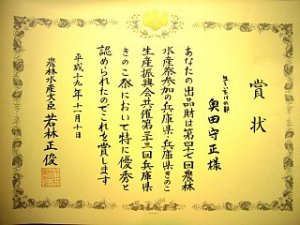 賞状
生しいたけの部
奥田守正様
あなたの出品財は第四七回農林
水産祭参加の兵庫県・兵庫県きのこ
生産振興会共催第三十三回兵庫県
きのこ祭において特に優秀と
認められたのでこれを賞します
平成十九年十一月十日
農林水産大臣 若林正俊